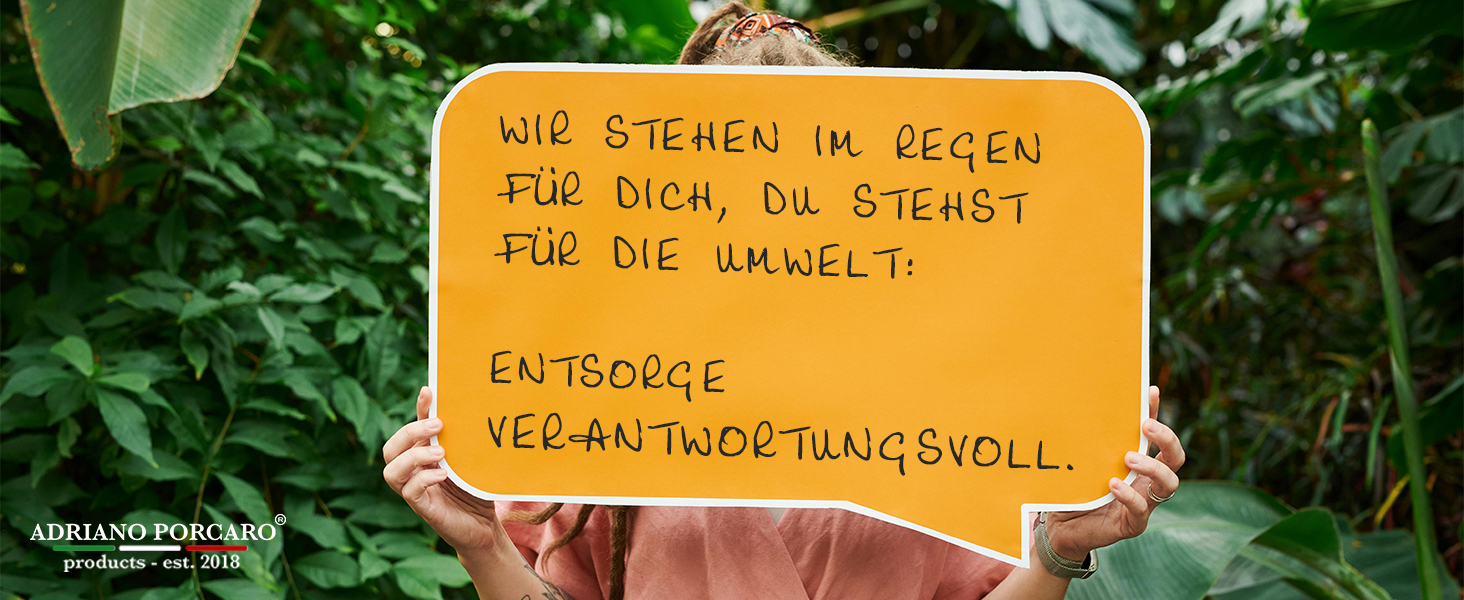 WIR STEHEN IM REGEN
FÜR DICH, DU STEHST
FÜR DIE UMWELT:
ENTSORGE
VERANTWORTUNGSVOLL.
ADRIANO PORCARO®
products - est. 2018